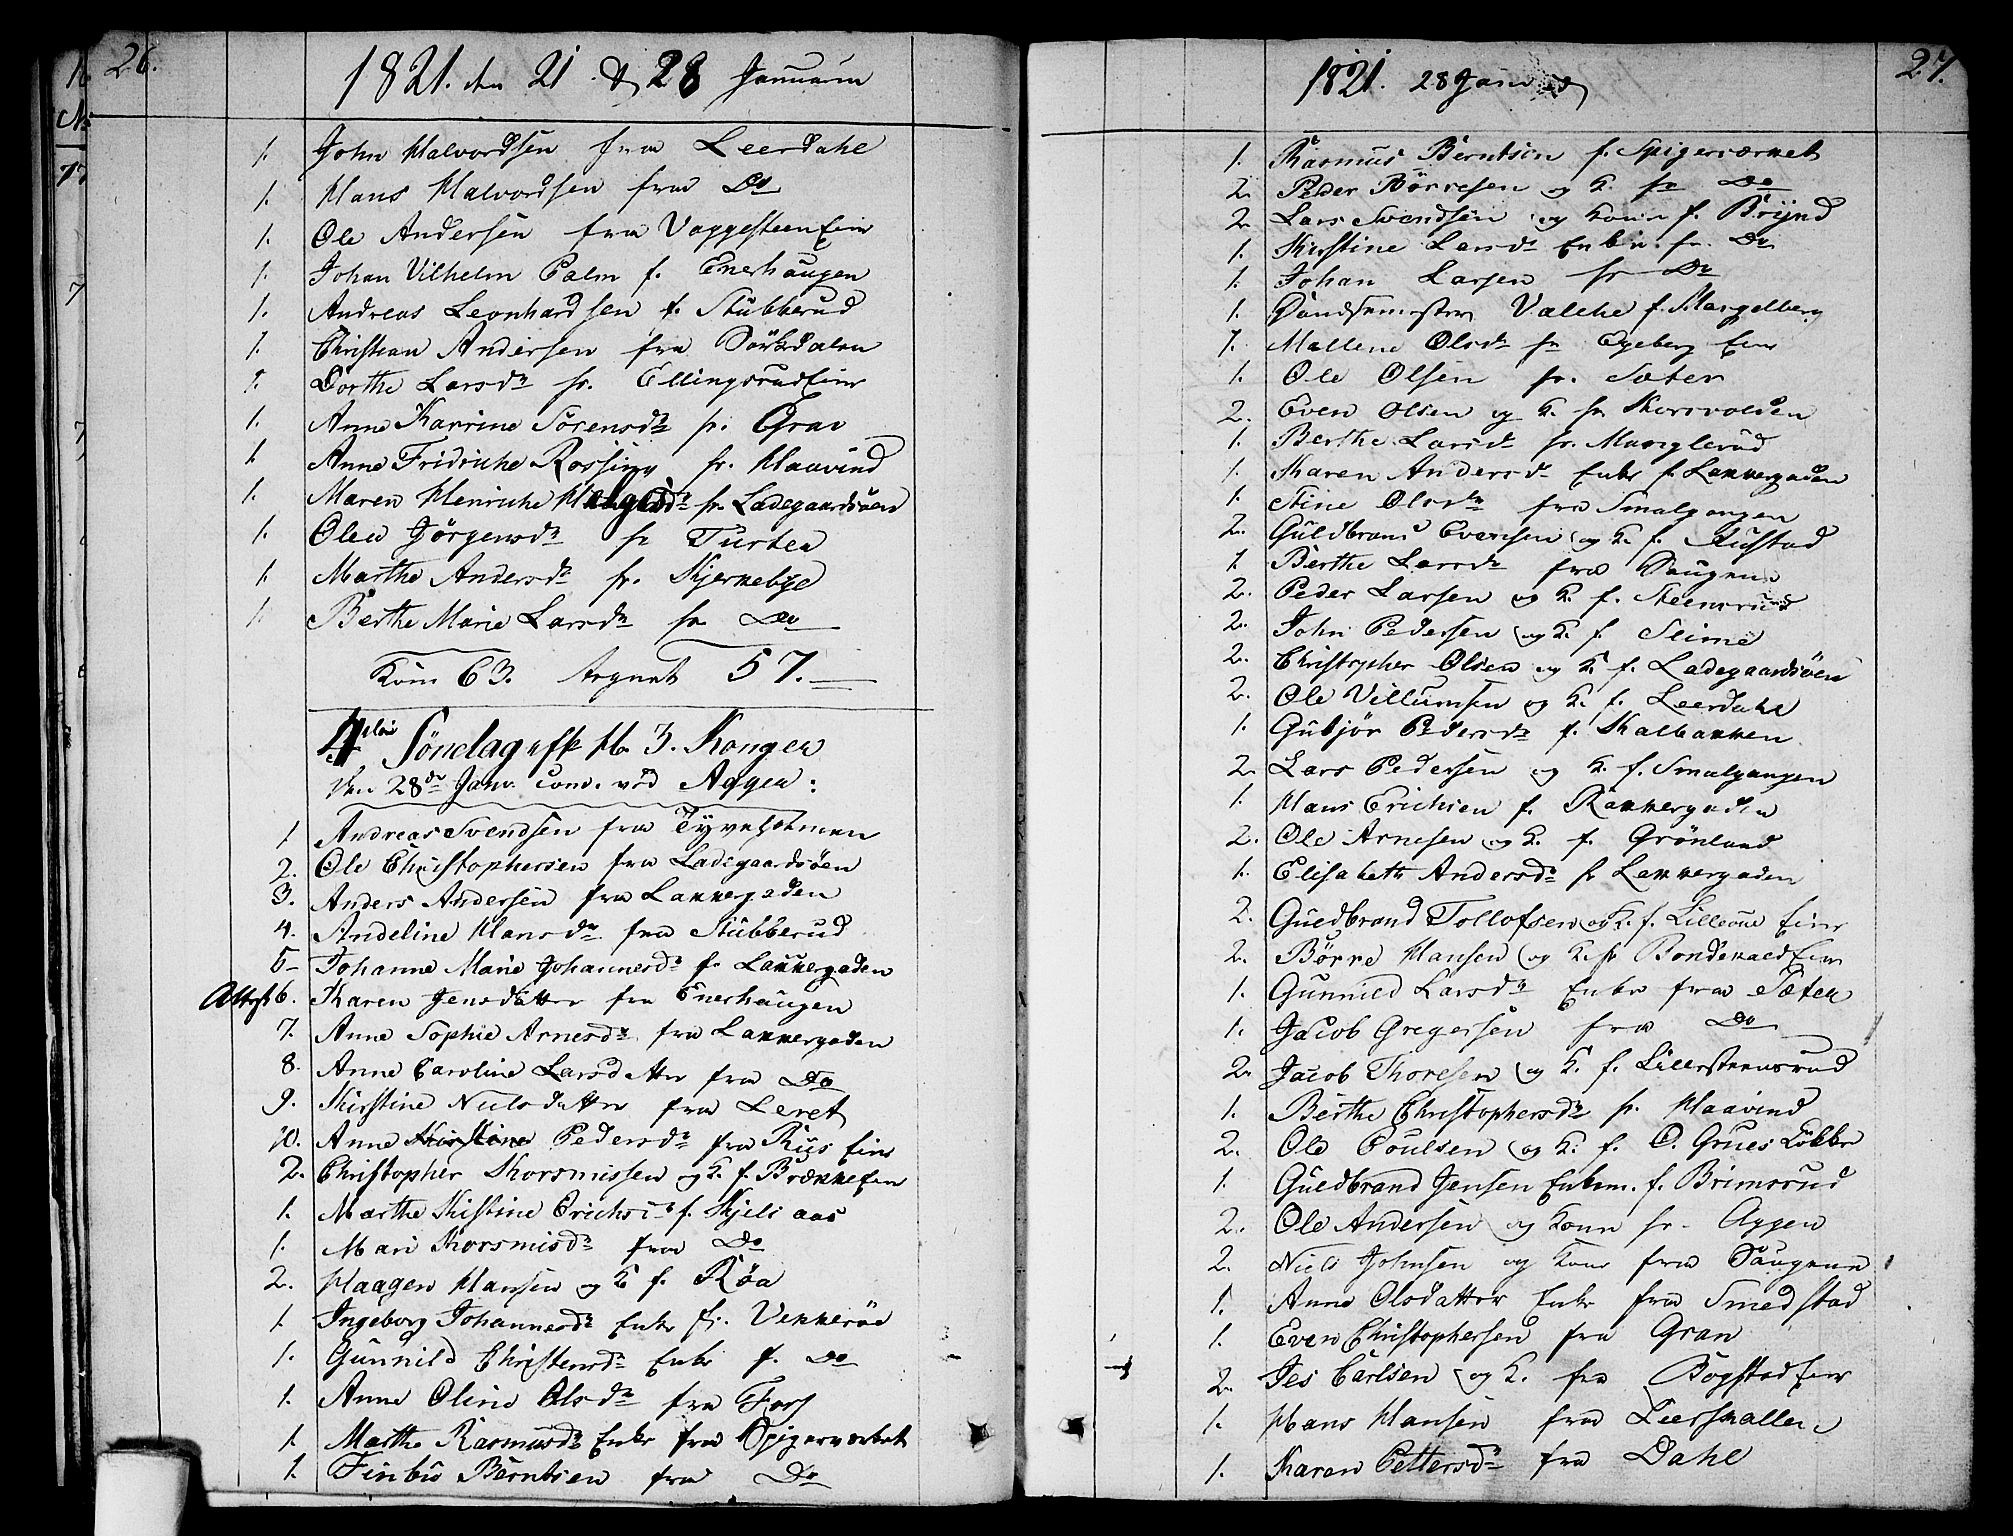 26.
1821. den 21 & 28 Januarii
1. John Halvordsen fra Leerdahl
1. Hans Halvordsen fra Do
1. Ole Andersen fra VaggesteenEier
1. Johan Vilhelm Palm f. Enerhaugen
1. Andreas Leonhardsen f. Stubberud
1. Christian Andersen fra Sørkedalen
1. Dorthe Larsdr fr. EllingsrudEier
1. Anne Karrine Sørensdr fr. Grav
1. Anne Fridriche Rossing fr. Haavind
1. Maren Henriche Helgesdr fr Ladegaardsøen
1. Olea Jørgensdr fr Turter
1. Marthe Andersdr fr. Skjerkebye
1. Berthe Marie Larsdr fr Do
Kom 63. Argnet 57.
4de Søndag efter H. 3. Konger
den 28de Janv. Com. ved Agger:
1 Andreas Svendsen fra Tyveholmen
2. Ole Christophersen fra Ladegaardsøen
3. Anders Andersen fra Lakkergaden
4. Andeline Hansdr fra Stubberud
5- Johanne Marie Johannesdr f. Lakkergaden
Attest 6. Karen Jensdatter fra Enerhaugen
7. Anne Sophie Arnesdr fra Lakkergaden
8. Anne Caroline Larsdatter fra Do
9. Kirstine Nielsdatter fra Leret
10. Anne Kirstine Pedersdr fra Riis Eier
2. Christopher Thorsmissen og K. f. BrækkeEier
1. Marthe Kistine Erichsdr f. Skjeli aas
1. Mari Thorsmisdr fra Do
2. Haagen Hansen og K f. Røa
1 Ingeborg Johannesdr Enke fr. Vekkerøe
1. Gunnild Christensdr Enke f. Do
1. Anne Oline Olsdr fra Foss
1. Marthe Rasmusdr Enke fra Spigerværket
1. Finbu Berntsen fra Do
27.
1821. 28 Janv
1. Rasmus Berntsen f. Spigerværket
2. Peder Børresen og K. fr Do
2 Lars Svendsen og Kone f. Brynd
1. Kirstine Larsdr Enke fr. Do
1. Johan Larsen fr Do
1. Valche f. Mangelberg
1. Mallene Olsdr fr Egeberg Eier
1. Ole Olsen fr. Sæter
2. Even Olsen og K. fr Korsvolden
1. Berthe Larsdr fr. Manglerud
1. Karen Andersdr Enke f. Lakkergaden
1 Stine Olsdr fra Smalgangen
2. Guldbrand Evensen og K. f. Rustad
1 Berthe Larsdr fra Haugen
2. Peder Larsen og K. f. Steensrud
2. John Pedersen og K. f. Seime
2. Christopher Olsen og K. f. Ladegaardsøen
2. Ole Villumsen og K. f. Leerdahl
1. Gubjør Pedersdr f. Kalbakken
2. Lars Pedersen og K. f. Smalgangen
1. Hans Erichsen f. Rakkergaden
2. Ole Arnesen og K. f. Grønland
1. Elisabeth Andersdr fr Lakkergaden
2. Guldbrand Tollofsen og K. f. Lilleoue Eier
2. Børre Hansen og K. fr BondekaldEier
1. Gunnild Larsdr Enke fra Sæter
1. Jacob Gregersen fra Do
2. Jacob Thoresen og K. f. Lillesteensrud
1. Berthe Christophersdr fr. Haavind
2. Ole Poulsen og K. f. O. Grues Løkke
1. Guldbrand Jensen Enkem. f. Brimsrud
2. Ole Andersen og Kone fr. Aggen
2. Niels Johnsen og Kone fra Haugene
1. Anne Olsdatter Enke fra Smedstad
1. Even Christophersen fra Gran
2. Jes Carlsen og K. fra Bogstad Eier
1. Hans Hansen fra Leerskallen
1. Karen Pettersdr fra Dahl